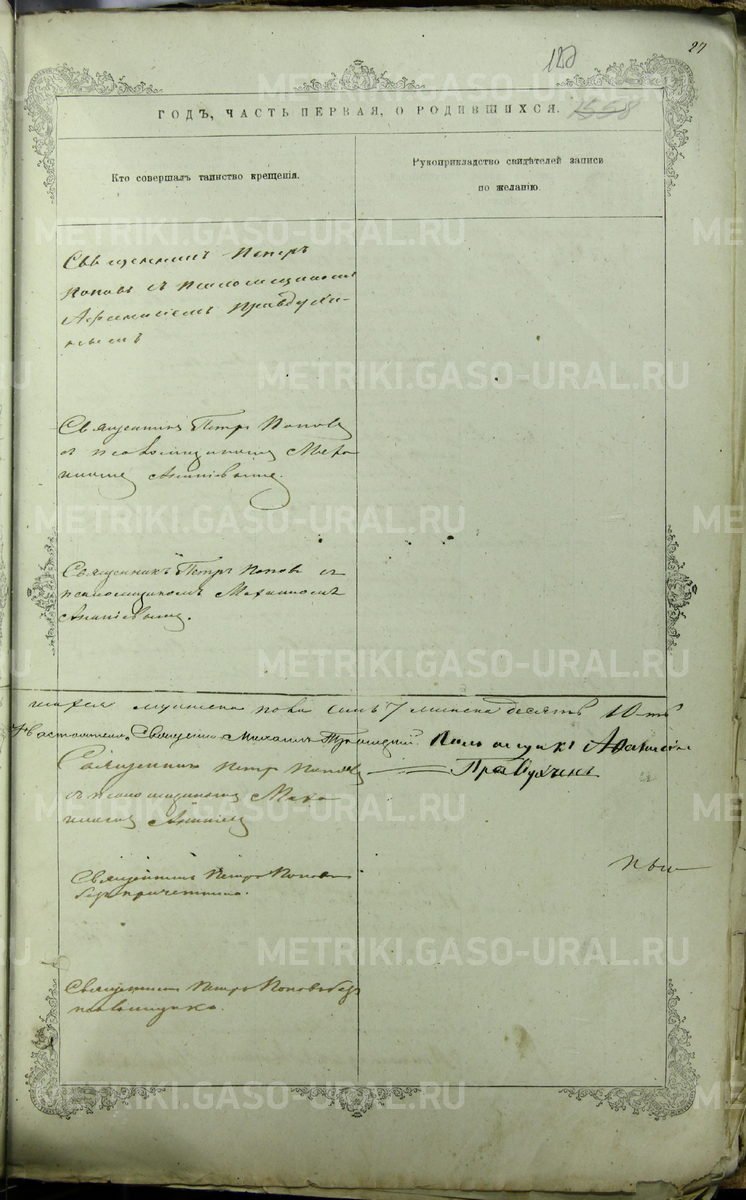 27
120
ГОДЪ, ЧАСТЬ ПЕРВАЯ, О РОДИВШИХСЯ.
Кто совершалъ таинство крещенія.
Рукоприкладство свидѣтелей записи
по желанію.
Священникъ Петръ
Поповъ съ псаломщикомъ
Афанасіемъ Правдухи-
нымъ
Священникъ Петръ Поповъ
съ псаломщикомъ Меха
Священникъ Петръ Поповъ съ
псаломщикомъ
мужеска пола семь 7 женска десять 10-ть
Священникъ Михаилъ Псаломщикъ Афанасій
Правдухинъ
Священникъ Петръ Поповъ
съ псаломщикомъ Меха
Священникъ Петръ Поповъ
безъ причетника.
Священникъ Петръ Поповъ безъ
псаломщика.
METRIKI.GASO-URAL.RU